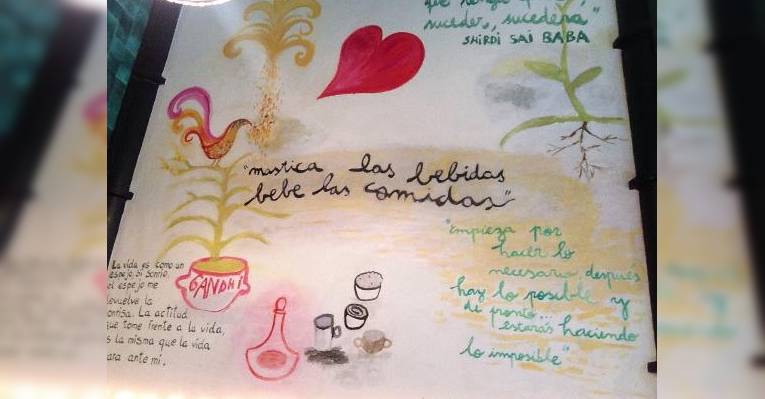 que tenga q
suceder, sucederá"
SHIRDI SAI BABA
"mastica las bebidas
bebe las comidas"
"empieza por
hacer lo
necesario, después
haz lo posible y
de pronto...
estarás haciendo
lo imposible"
La vida es como un
espejo, si sonrío
el espejo me
devuelve la
sonrisa. La actitud
que tome frente a la vida,
es la misma que la vida
ara ante mí.
GANDHI